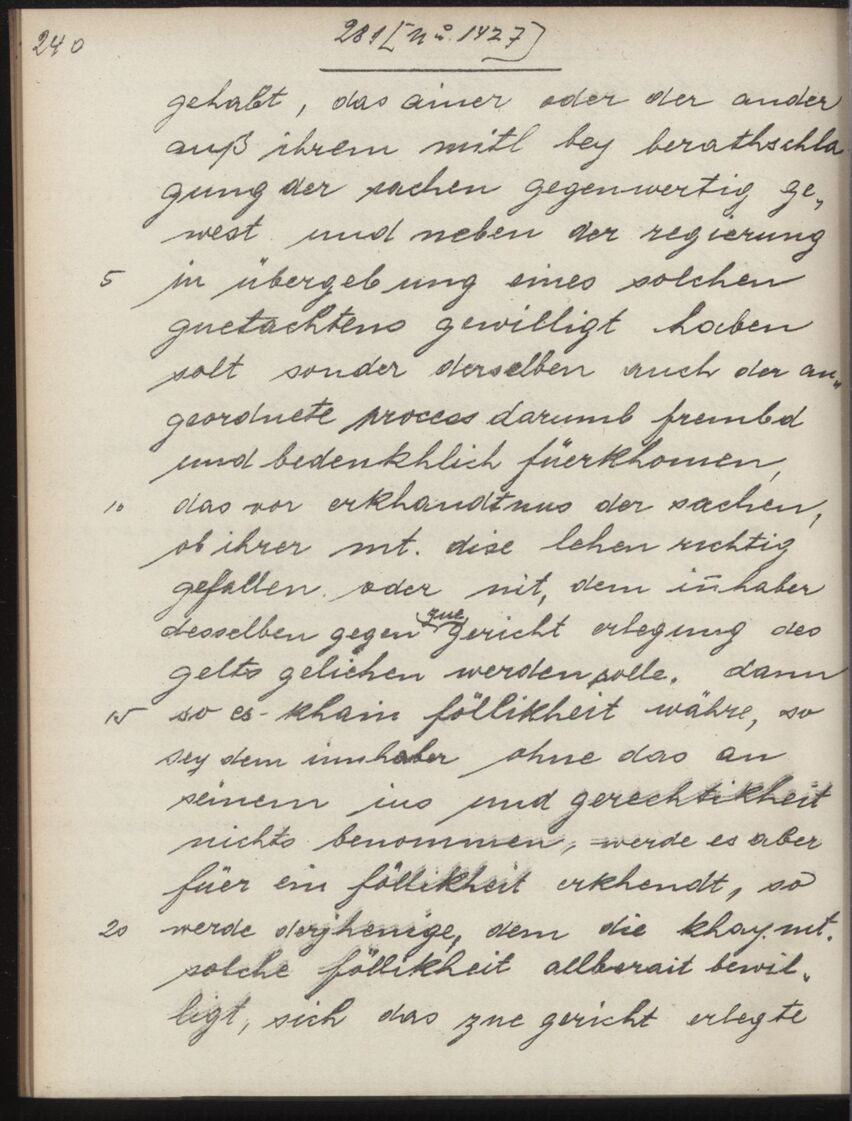 240
281 [No. 1427]
gehabt, das ainer oder der ander
auß ihrem mitl bey berathschla
gung der sachen gegenwertig ge„
west und neben der regierung
5 in übergebung eines solchen
guetachtens gewilligt haben
solt sonder derselben auch der an„
geordnete process darumb frembd
und bedenkhlich füerkhomen,
10 das vor erkhandtnus der sachen,
ob ihrer mt. dise lehen richtig
gefallen oder nit, dem inhaber
desselben gegen zue gericht erlegung des
gelts gelichen werden solle. dann
15 so es khain föllikheit währe, so
sey dem innhaber ohne das an
seinem ius und gerechtikheit
nichts benommen, werde es aber
füer ein föllikheit erkhendt, so
20 werde derjhenige, dem die khay. mt.
solche föllikheit allberait bewil„
ligt, sich das zue gericht erlegte